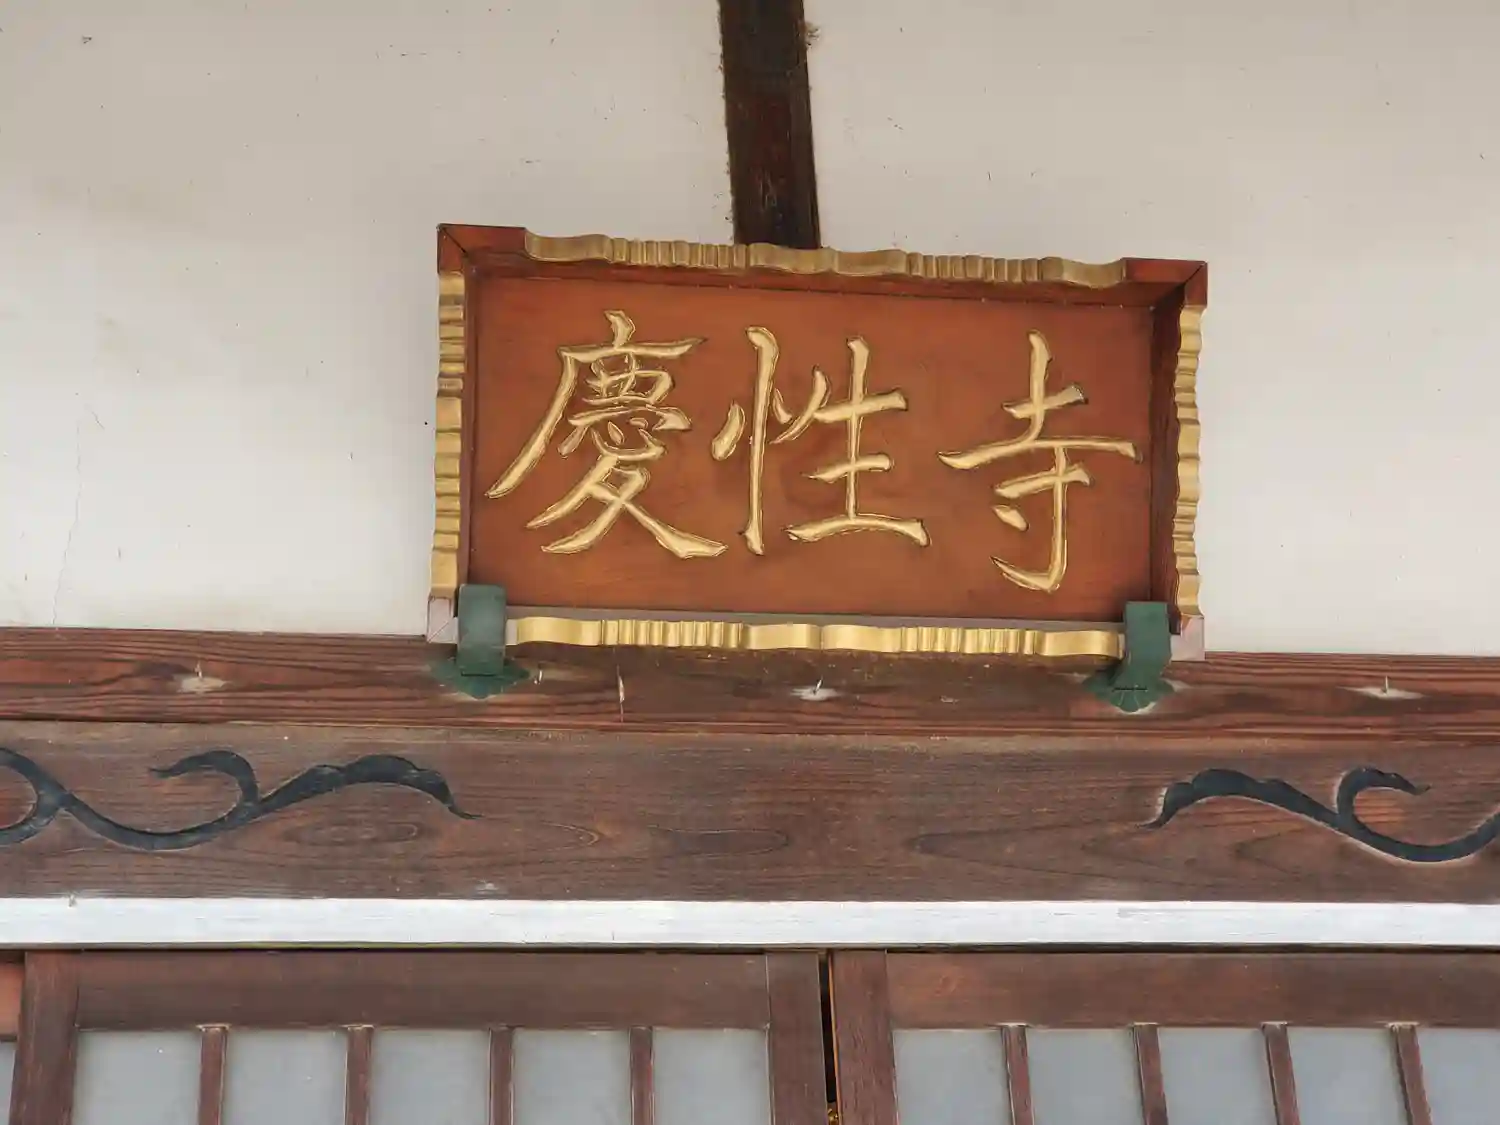 慶性寺